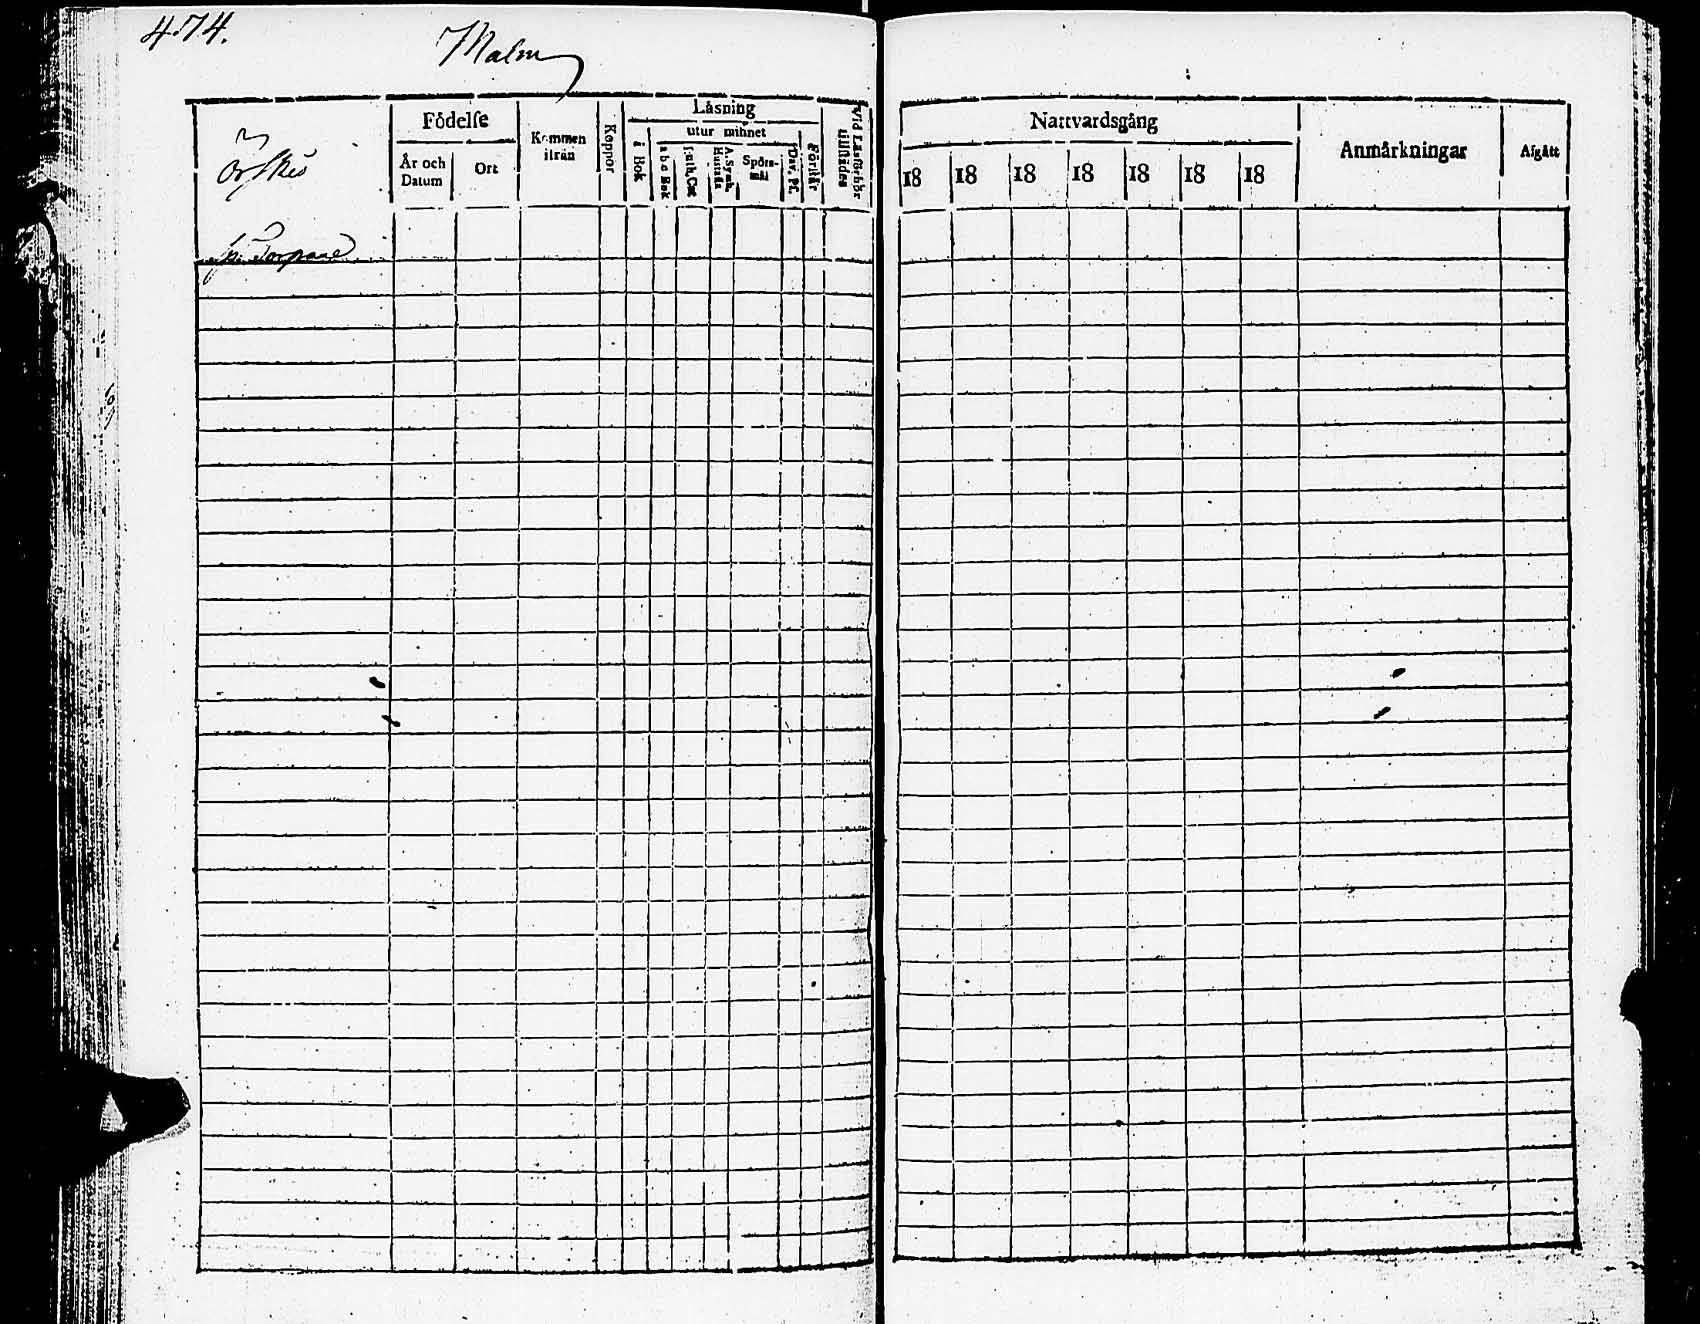 474.
Malm
Födelse
År och Datum
Ort
Kommen ifrån
Koppor
Läsning
i Bok
utur minnet
a b c Bok
Luth. Cat
A. Symb. Hustafl.
Spörs-mål
Dav. Ps.
Förstår
Vid Läsförhör tillstädes
Nattvardsgång
18 18 18 18 18 18 18
Anmärkningar
Afgått